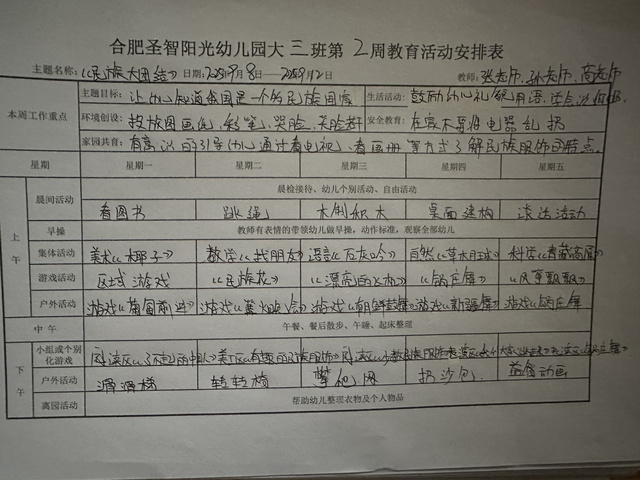 合肥圣智阳光幼儿园大三班第2周教育活动安排表
主题名称:《民族大团结》日期: 9月8日 教师: 张老师、孙老师、高老师
本周工作重点 主题目标: 让幼儿知道我国是一个多民族国家 生活活动: 鼓励幼儿礼貌用语
环境创设: 投放图画纸,彩笔,哭脸、笑脸 安全教育: 在家不要将电器乱扔
家园共育: 有意识的引导幼儿通过看电视、看画册等方式了解民族服饰的特点。
星期 星期一 星期二 星期三 星期四 星期五
上午 晨间活动 晨检接待、幼儿个别活动、自由活动
看图书 跳绳 木制积木 桌面建构 谈话活动
早操 教师有表情的带领幼儿做早操,动作标准,观察全部幼儿
集体活动 美术《椰子》 数学《找朋友》 语言《 》 自然《草木 》 科学《青藏高原》
游戏活动 区域游戏 《民族花》 《漂亮的 》 《锅庄舞》 《风筝飘飘》
户外活动 游戏《葡萄 》 游戏《篝火晚会》 游戏《朝鲜 》 游戏《新疆舞》 游戏《锅庄舞》
中午 午餐、餐后散步、午睡、起床整理
下午 小组或个别化游戏 阅读区《 》 美工区《有趣的民族服饰》 阅读区《 》 表演区《 》
户外活动 滑滑梯 转转椅 攀爬网 扔沙包 益智动画
离园活动 帮助幼儿整理衣物及个人物品